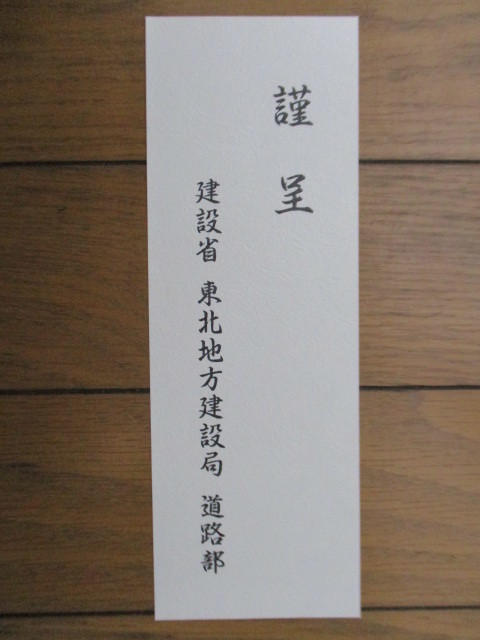 謹呈
建設省 東北地方建設局 道路部